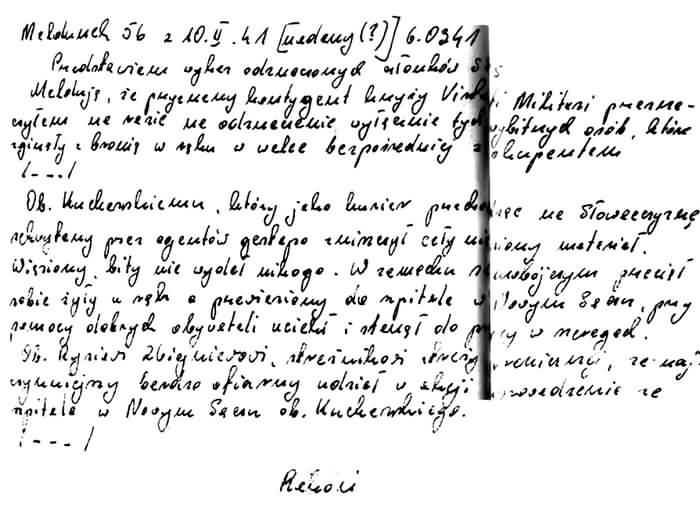 Meldunek 56 z 10.II.41 [nadany (?)] 6.0341
Przedstawiam wykaz odznaczonych członków
Melduję, że przyznany kontyngent krzyży Virtuti Militari przezna-
czyłem na razie na odznaczenie wyłącznie tych wybitnych osób, które
zginęły z bronią w ręku w walce bezpośredniej z okupantem
/---/
Ob. Kucharskiemu, który jako kurier przechodząc na Słowaczyznę
schwytany przez agentów gestapo zniszczył cały niesiony materiał.
Więziony, bity nie wydał nikogo. W zamachu samobójczym przeciął
sobie żyły u rąk a przewieziony do szpitala w Nowym Sączu, przy
pomocy dobrych obywateli uciekł i stanął do pracy w szeregach.
Ob. Rysiowi Zbigniewowi, strażnikowi straży za naj-
czynniejszy bardzo ofiarny udział w akcji uprowadzenia ze
szpitala w Nowym Sączu ob. Kucharskiego.
/---/
Rakoń